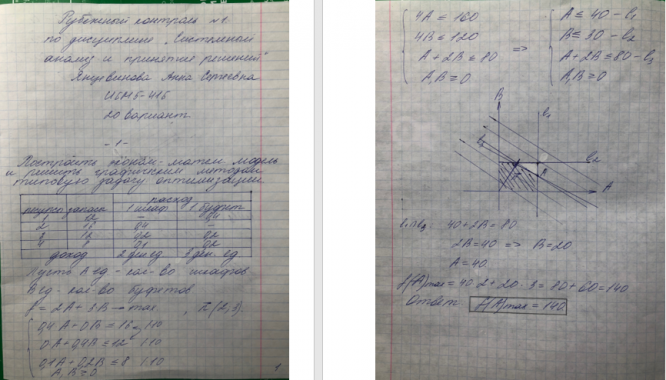 Рубежный контроль №1
по дисциплине "Системный
анализ и принятие решений"
Яна Сергеевна
ИБМ5-41Б
20 вариант
-1-
Постройте эконом.-матем. модель
и решить графическим методом
типовую задачу оптимизации
ресурсы запасы расход
1 шкаф 1 буфет
доход 2 ден. ед 3 ден. ед
Пусть A ед - кол-во шкафов
B ед - кол-во буфетов
F = 2A + 3B → max , (2,3)
0,4A + 0B ≤ 16 | ·10
0A + 0,4B ≤ 12 | ·10
0,1A + 0,2B ≤ 8 | ·10
A, B ≥ 0
1
4A ≤ 160
4B ≤ 120
A + 2B ≤ 80
A, B ≥ 0
=>
A ≤ 40 - l₁
B ≤ 30 - l₂
A + 2B ≤ 80 - l₃
A, B ≥ 0
B
l₁
l₃
l₂
A
A
l₁∩l₃: 40 + 2B = 80
2B = 40 => B = 20
A = 40
f(A)max = 40·2 + 20·3 = 80 + 60 = 140
Ответ: f(A)max = 140